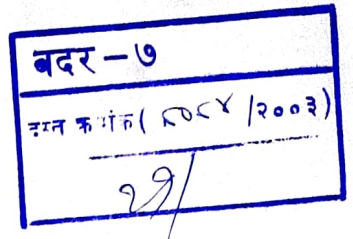 बदर - ७
दस्त क्रमांक ( ८०८४ /२००३)